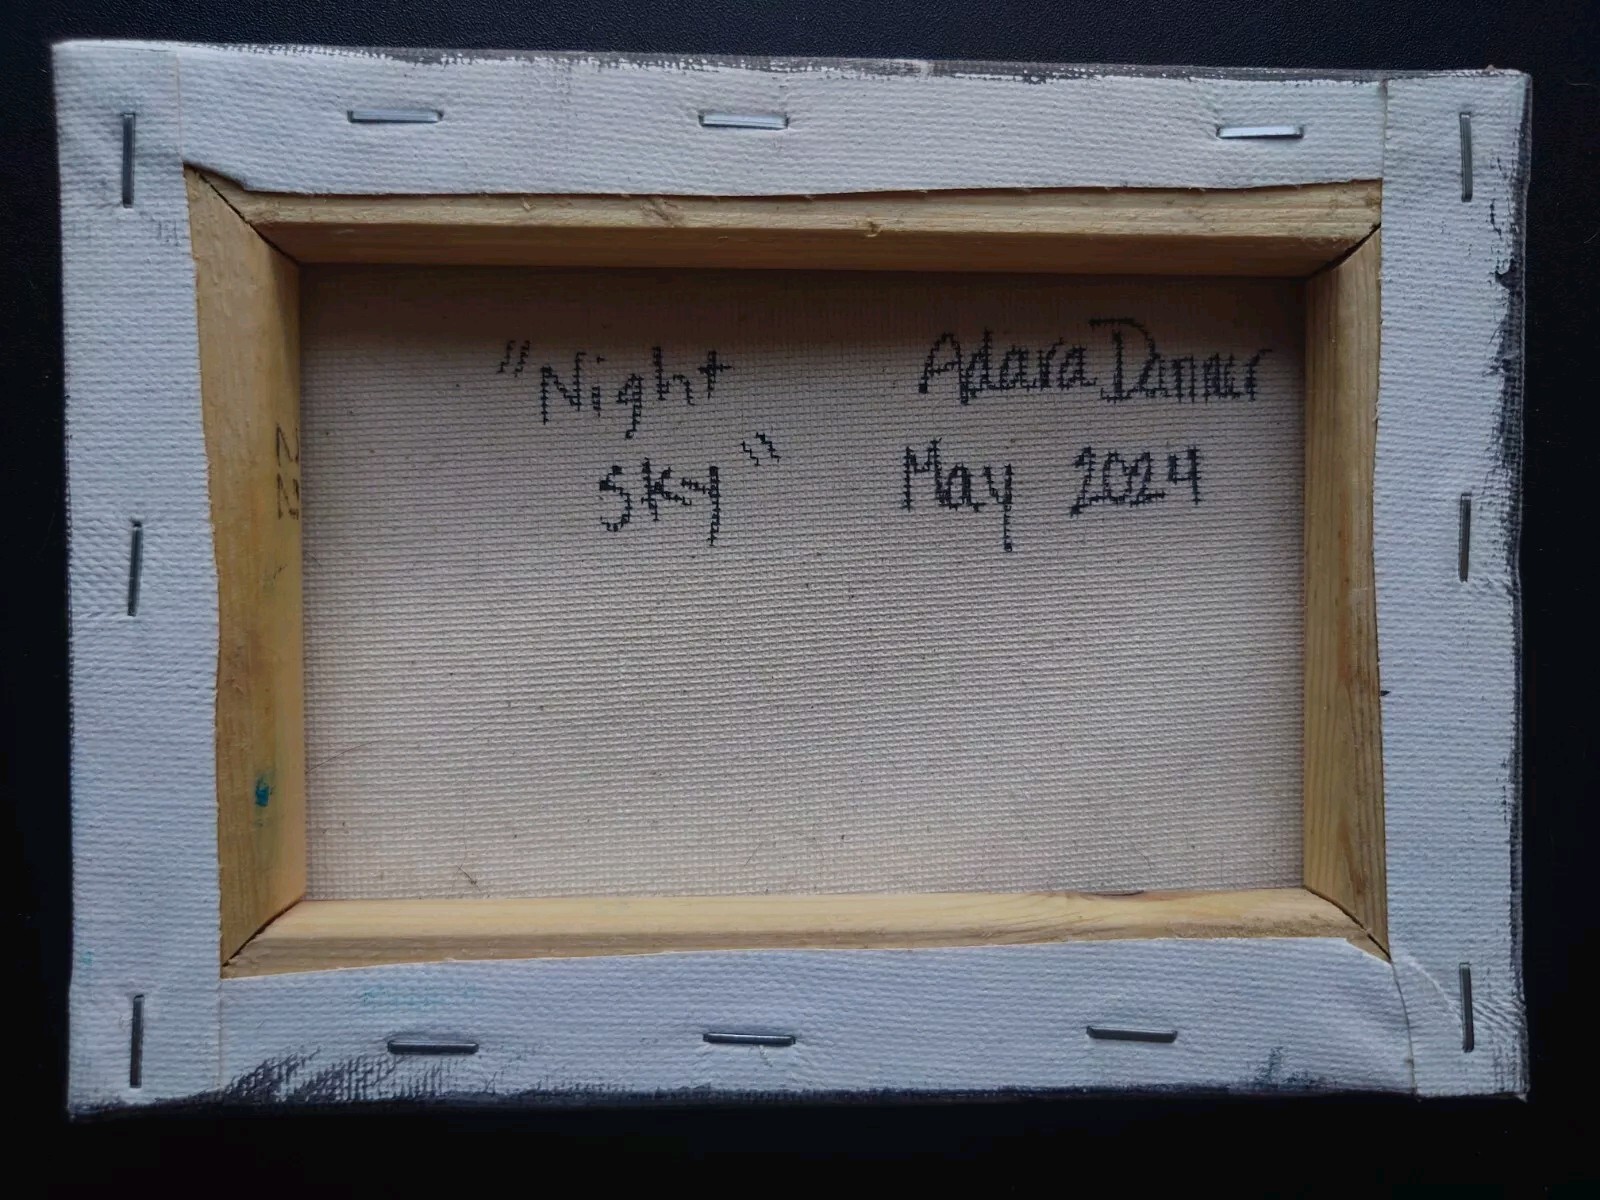 "Night
sky"
Adara Danner
May 2024